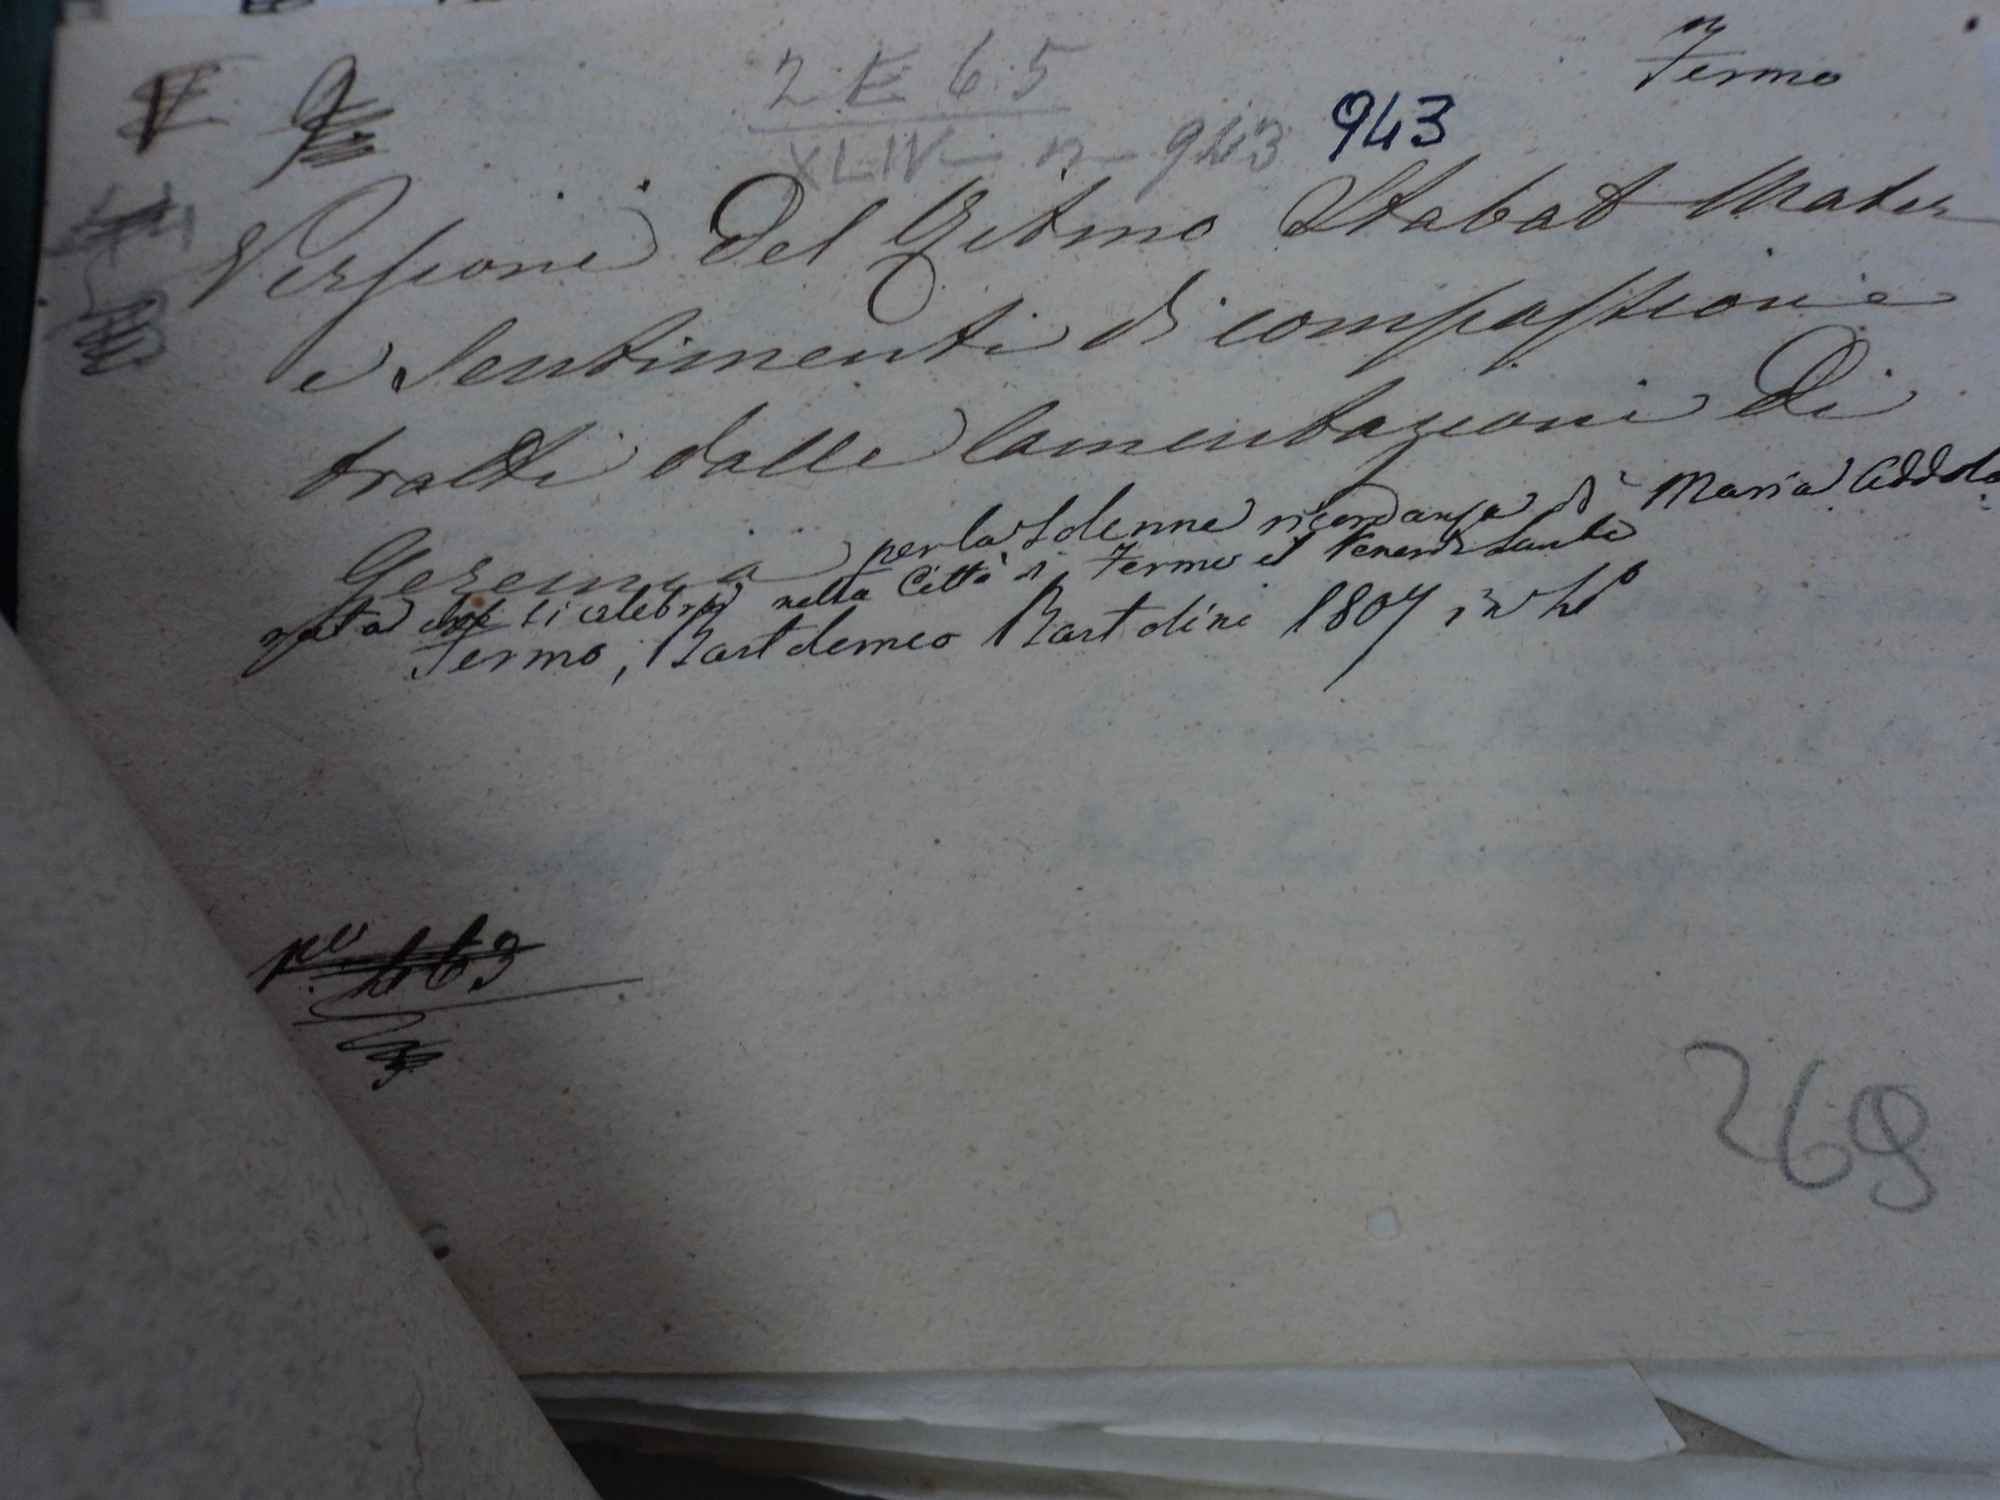 Fermo
2 E 65
XLIV - n - 943 943
Versione del Ritmo Stabat Mater
e Sentimenti di compassione
tratti dalle lamentazioni di
Geremia per la Solenne ricordanza di Maria Addolo
rata che si celebra nella Città di Fermo il Venerdì Santo
Fermo, Bartolomeo Bartolini 1807, in
269